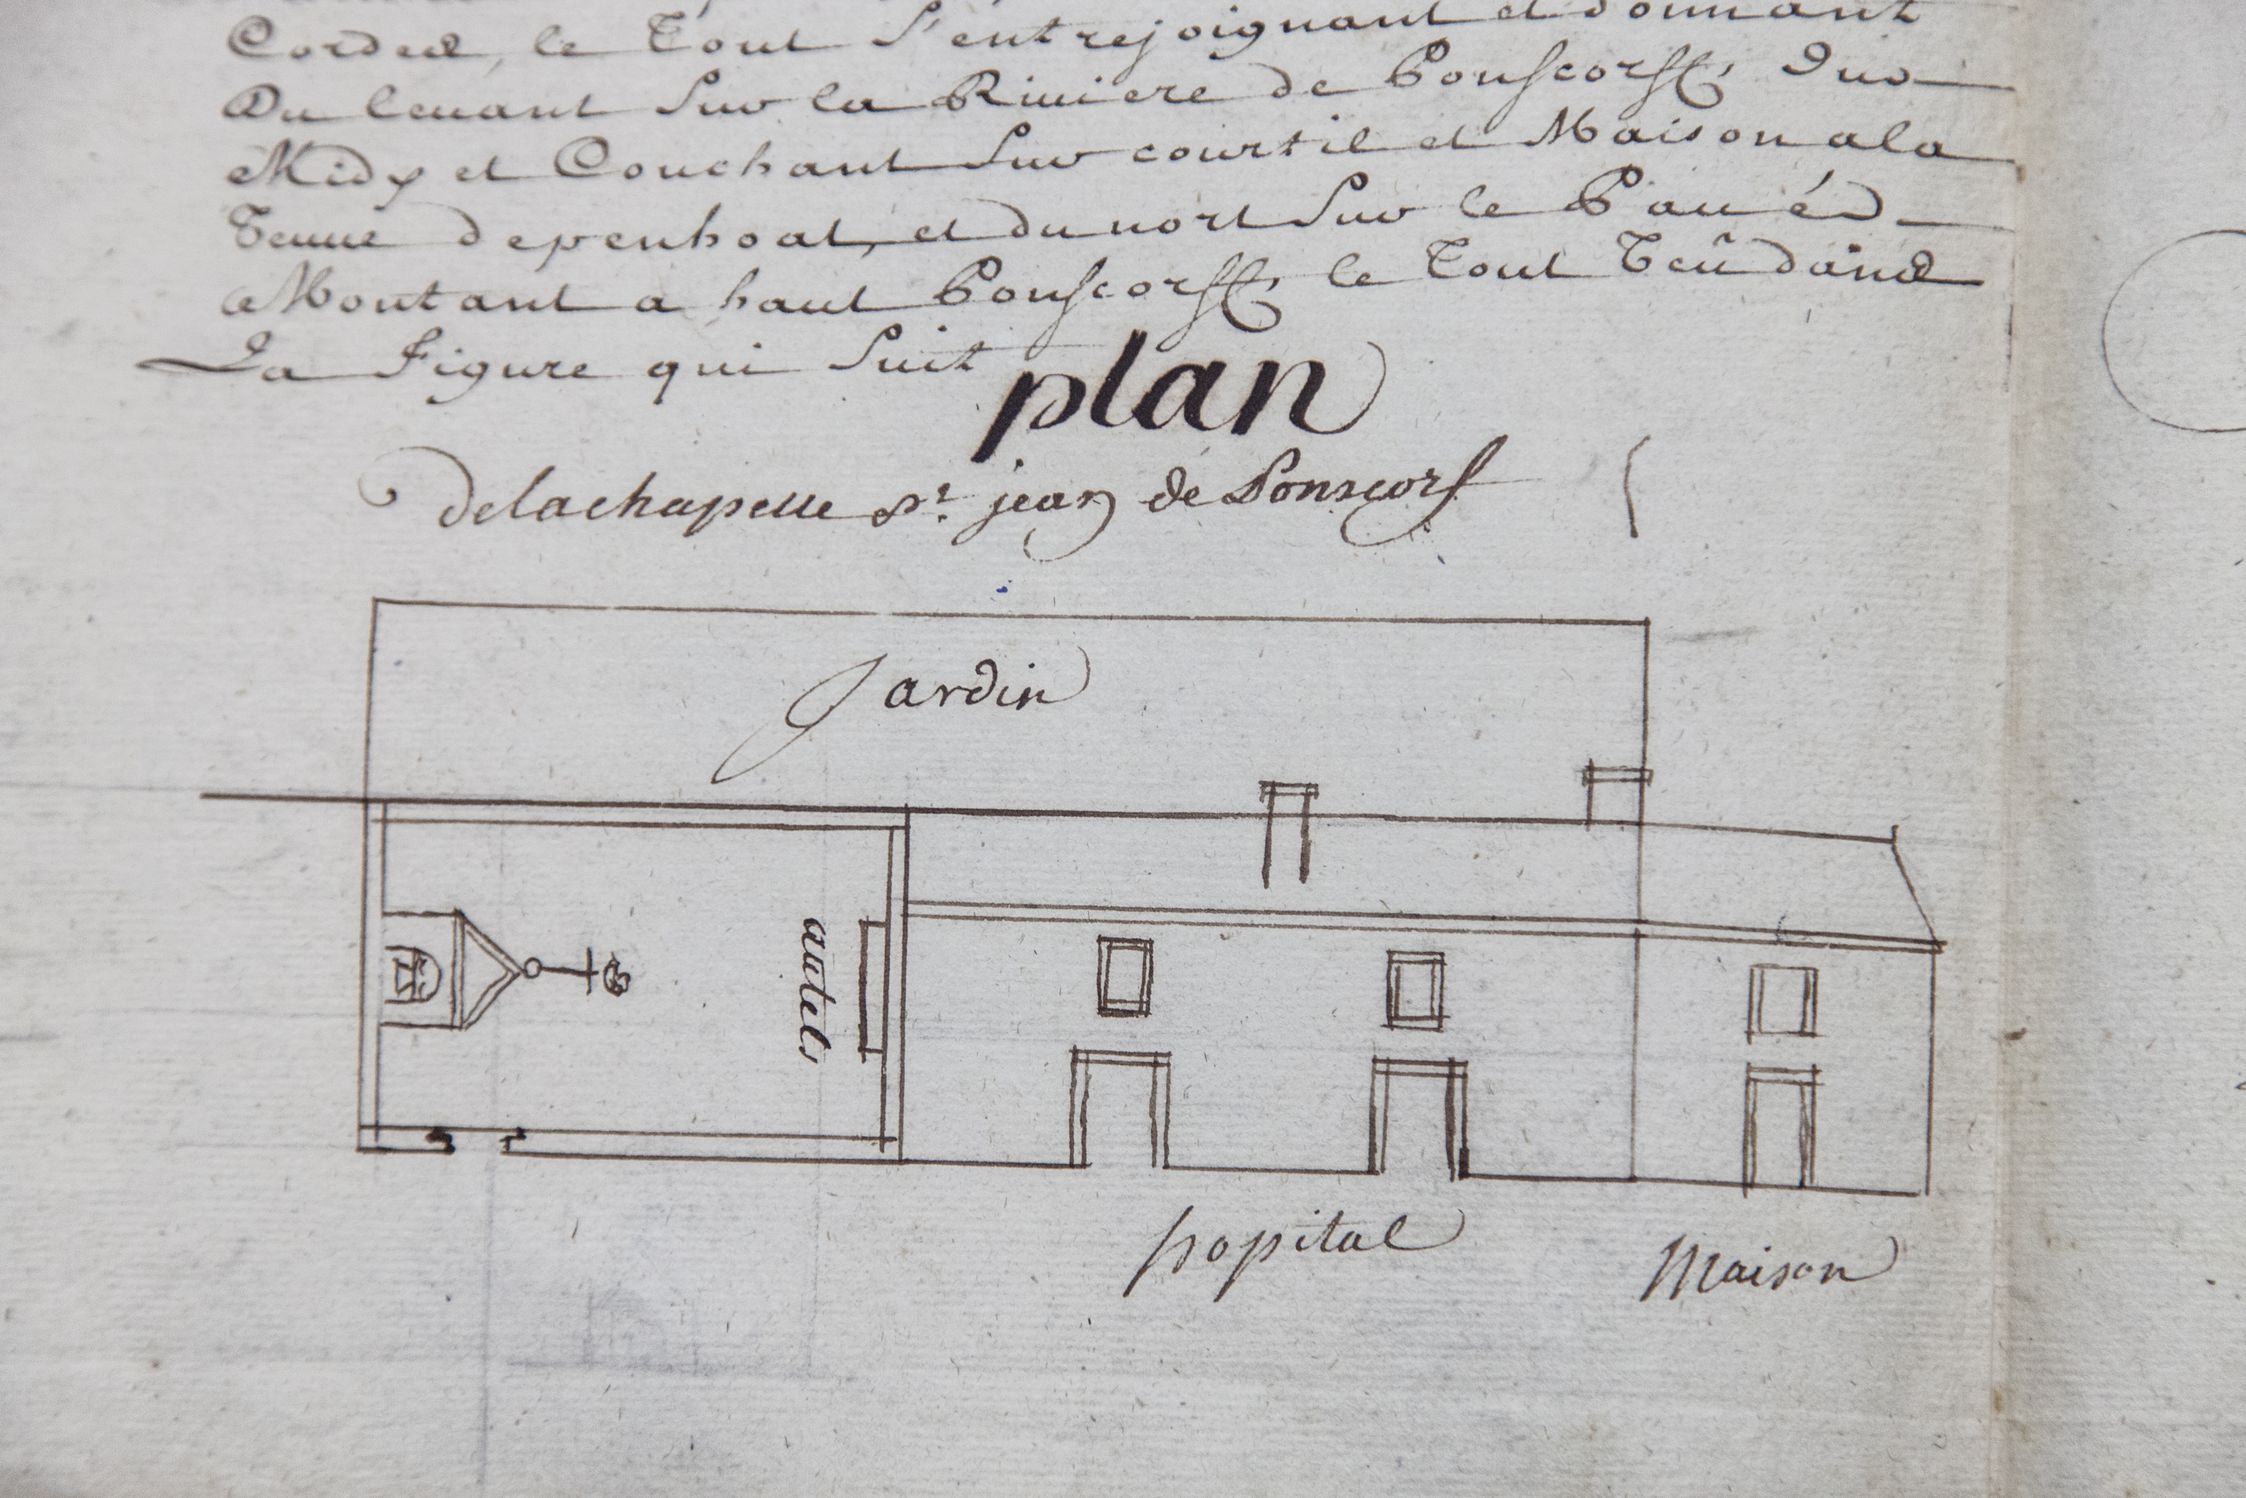 Cordes, le Tout S'entrejoignant et donnant
Du levant Sur la Riviere de Ponscorff, Du
Midy et Couchant Sur courtil et Maison a la
Tenue de penhoat, et du nort Sur le Pavé
Montant a haut Ponscorff, le Tout
La Figure qui Suit
plan
de la chapelle St. jean de Ponscorf
Jardin
autel
hopital
Maison